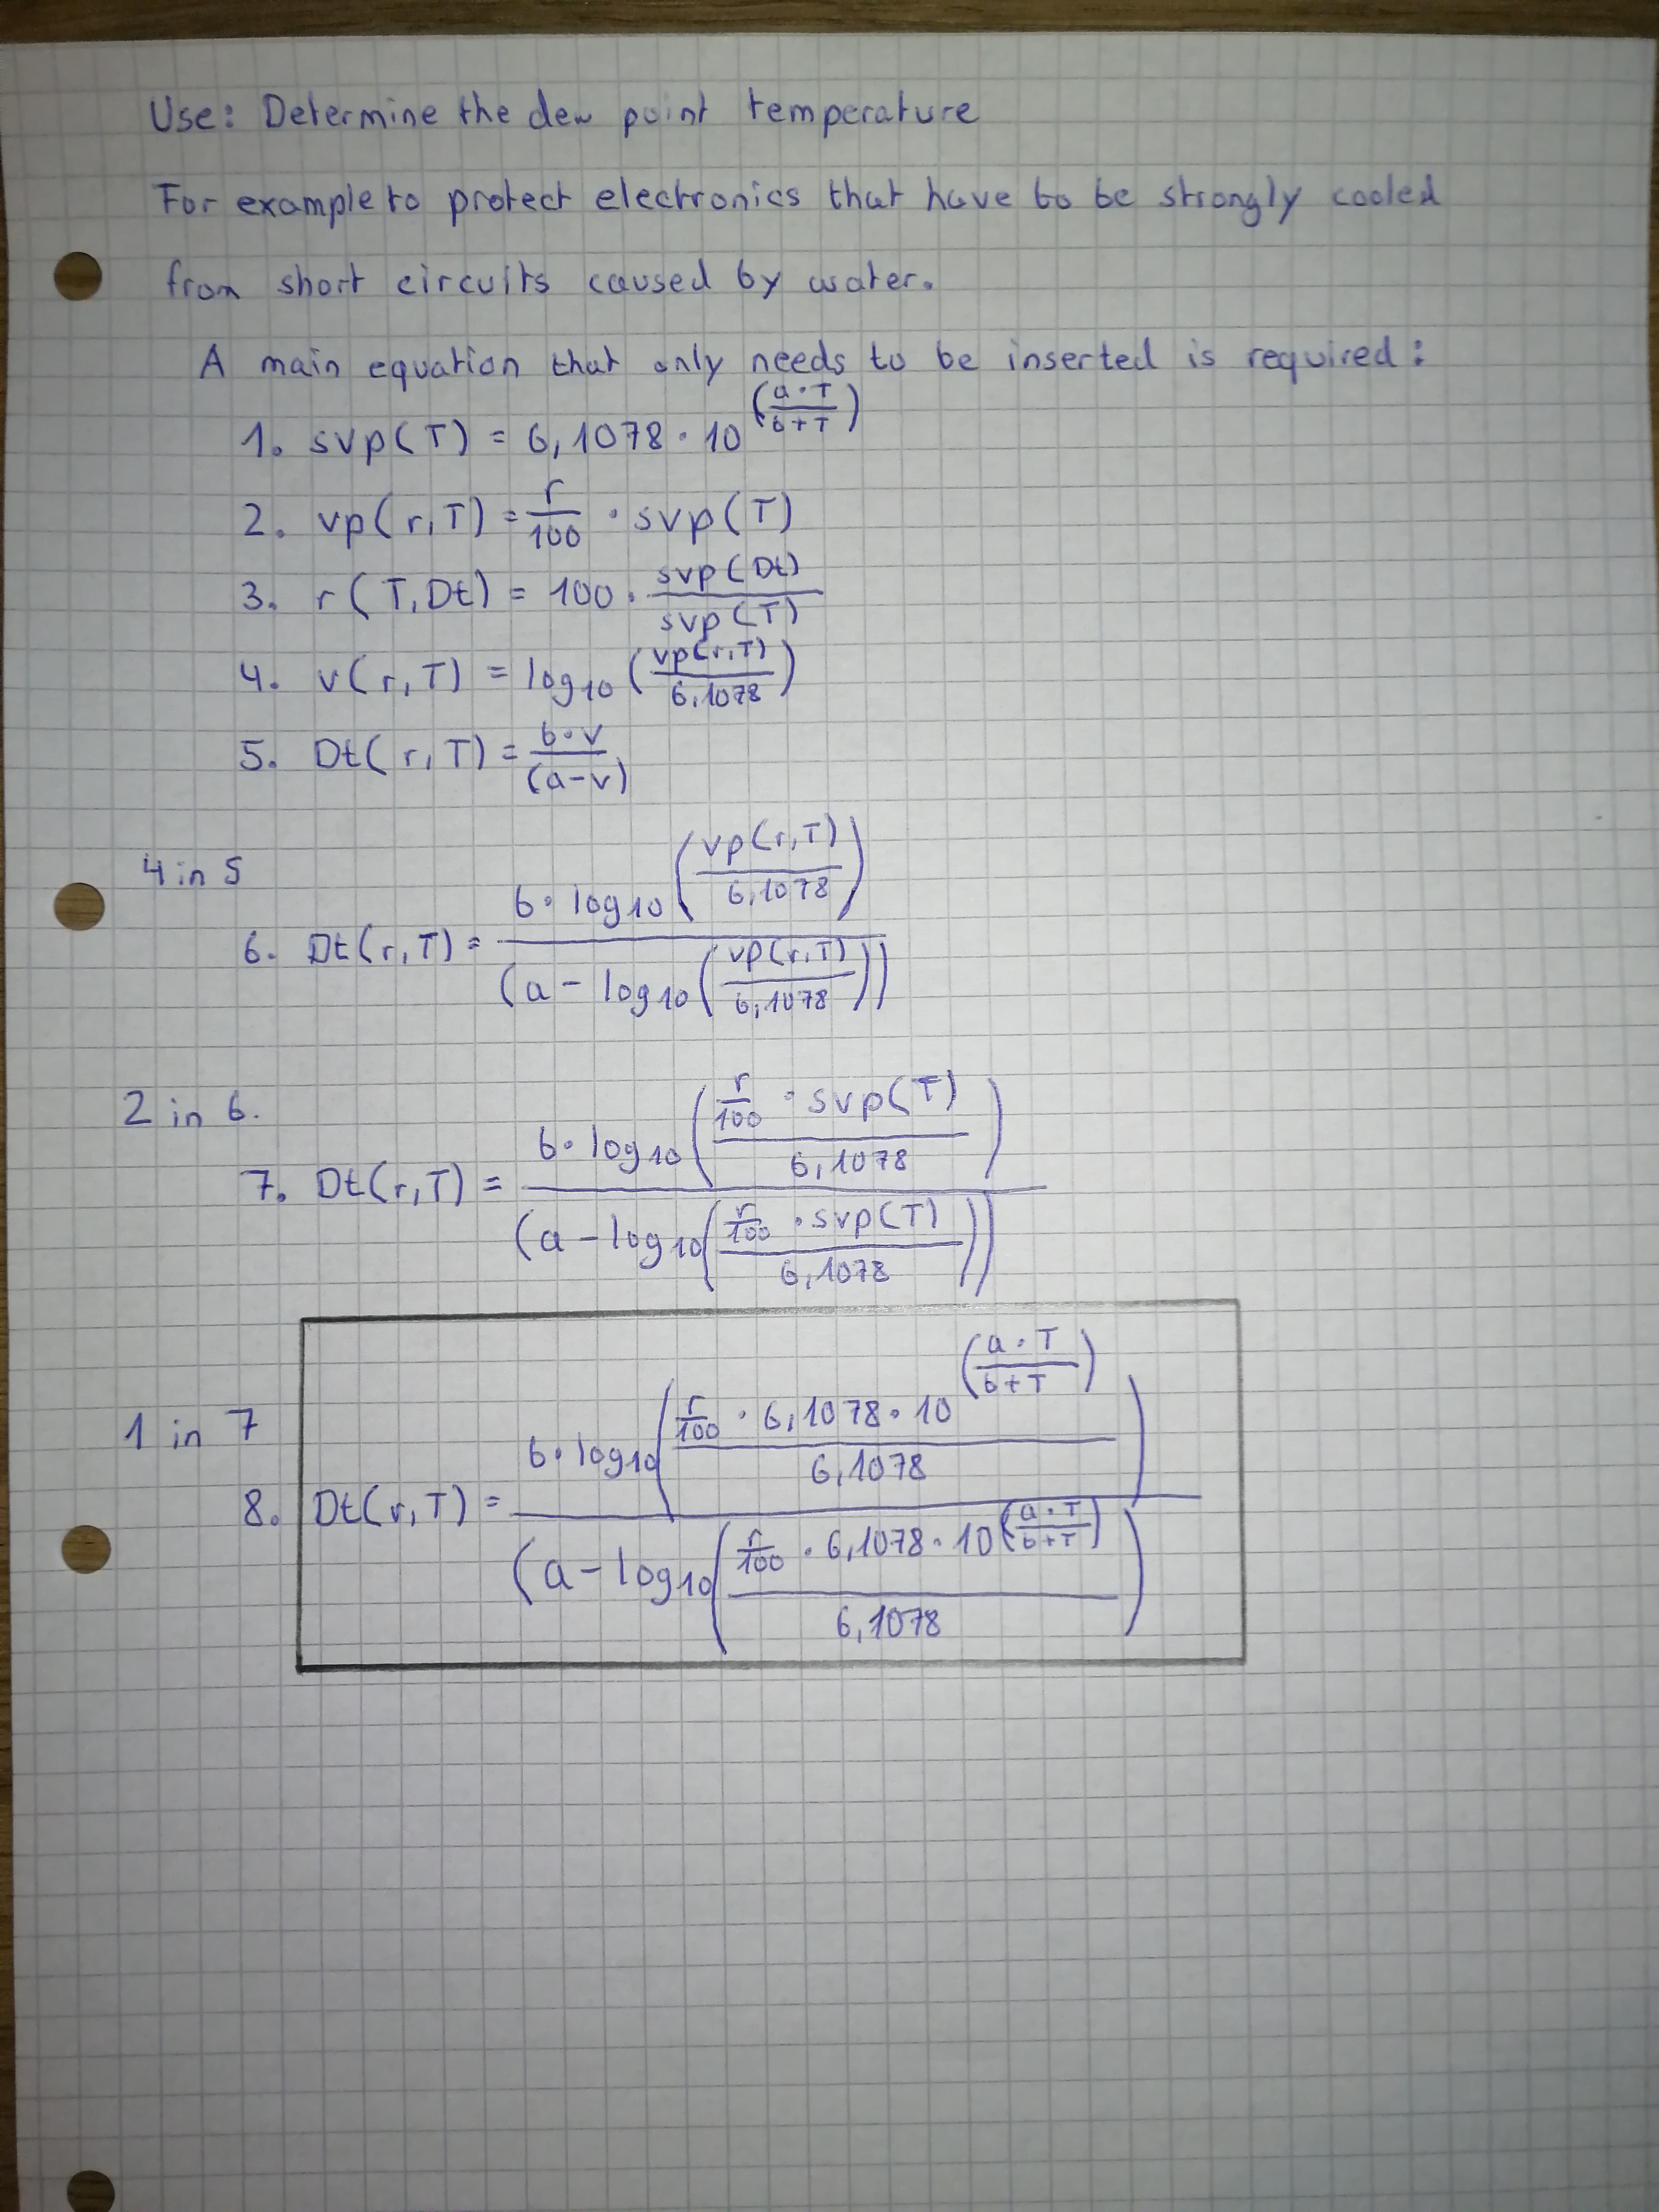 Use: Determine the dew point temperature
For example to protect electronics that have to be strongly cooled
from short circuits caused by water.
A main equation that only needs to be inserted is required:
1. svp(T) = 6,1078 · 10^((a·T)/(b+T))
2. vp(r,T) = r/100 · svp(T)
3. r(T,Dt) = 100 · svp(Dt)/svp(T)
4. v(r,T) = log₁₀(vp(r,T)/6,1078)
5. Dt(r,T) = b·v/(a-v)
4 in 5
6. Dt(r,T) = b·log₁₀(vp(r,T)/6,1078)/(a - log₁₀(vp(r,T)/6,1078))
2 in 6.
7. Dt(r,T) = b·log₁₀((r/100 · svp(T))/6,1078)/(a - log₁₀((r/100 · svp(T))/6,1078))
1 in 7
8. Dt(r,T) = b·log₁₀((r/100 · 6,1078 · 10^((a·T)/(b+T)))/6,1078)/(a - log₁₀((r/100 · 6,1078 · 10^((a·T)/(b+T)))/6,1078)